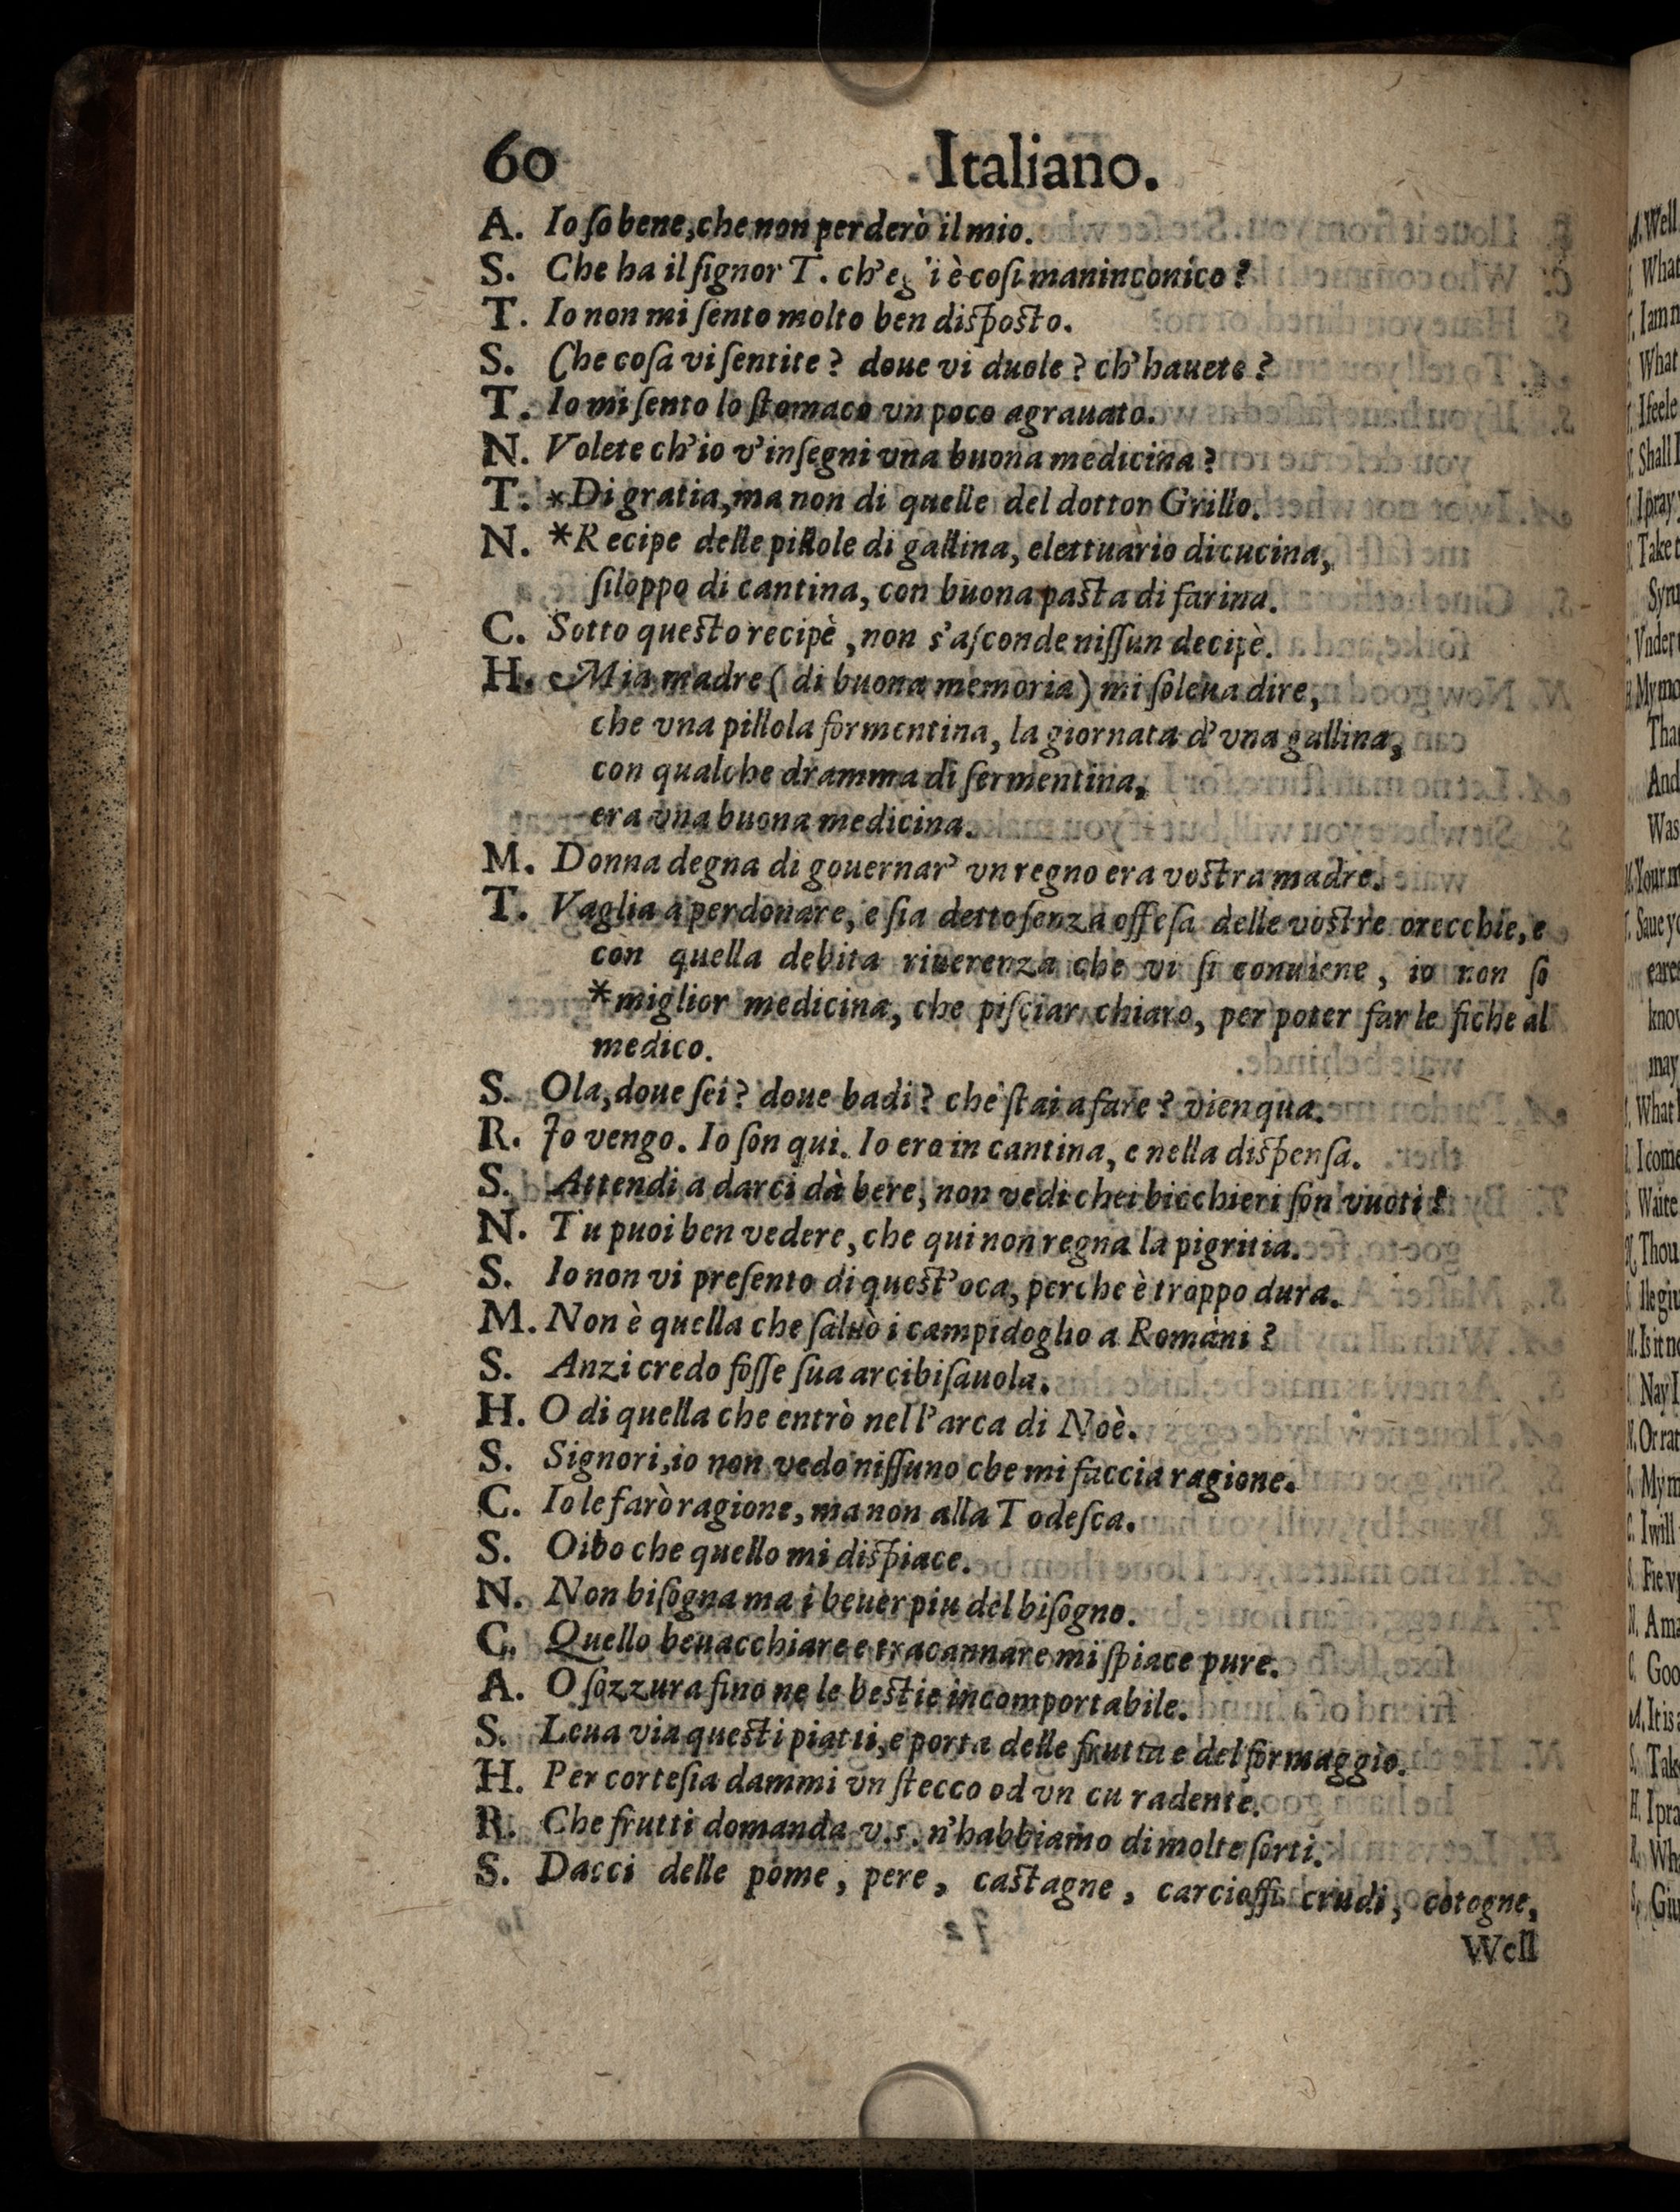 60 Italiano.
A. Io ſo bene, che non perderò il mio.
S. Che ha il ſignor T. ch'eg i è coſi maninconico?
T. Io non mi ſento molto ben diſpoſto.
S. Che coſa vi ſentite? doue vi duole? ch'hauete?
T. Io mi ſento lo ſtomaco vn poco agrauato.
N. Volete ch'io v'inſegni vna buona medicina?
T. *Di gratia, ma non di quelle del dottor Grillo.
N. *Recipe delle pillole di gallina, elettuàrio di cucina,
ſiloppo di cantina, con buona paſta di farina.
C. Sotto queſto recipè, non s'aſconde niſſun decipè.
H. Mia madre (di buona memoria) mi ſoleua dire,
che vna pillola formentina, la giornata d'vna gallina,
con qualche dramma di ſermentina,
era vna buona medicina.
M. Donna degna di gouernar' vn regno era voſtra madre.
T. Vaglia a perdonare, e ſia detto ſenza offeſa delle voſtre orecchie, e
con quella debita riuerenza che vi ſi conuiene, io non ſo
*miglior medicina, che piſciar chiaro, per poter far le fiche al
medico.
S. Ola, doue ſei? doue badi? che ſtai a fare? vien qua.
R. Io vengo. Io ſon qui. Io ero in cantina, e nella diſpenſa.
S. Attendi a darci dà bere, non vedi che i bicchieri ſon vuoti?
N. Tu puoi ben vedere, che qui non regna la pigritia.
S. Io non vi preſento di queſt'oca, perche è troppo dura.
M. Non è quella che ſaluò i campidoglio a Romàni?
S. Anzi credo foſſe ſua arcibiſauola.
H. O di quella che entrò nell'arca di Noè.
S. Signori, io non vedo niſſuno che mi faccia ragione.
C. Io le farò ragione, ma non alla Todeſca.
S. Oibo che quello mi diſpiace.
N. Non biſogna mai beuer piu del biſogno.
C. Quello beuacchiare e tracannare mi ſpiace pure.
A. O ſozzura fino ne le beſtie incomportabile.
S. Leua via queſti piatti, e porta delle frutta e del formaggio.
H. Per corteſia dammi vn ſtecco od vn cu radente.
R. Che frutti domanda v.s. n'habbiamo di molte ſorti.
S. Dacci delle pome, pere, caſtagne, carcioffi crudi, cotogne,
Well